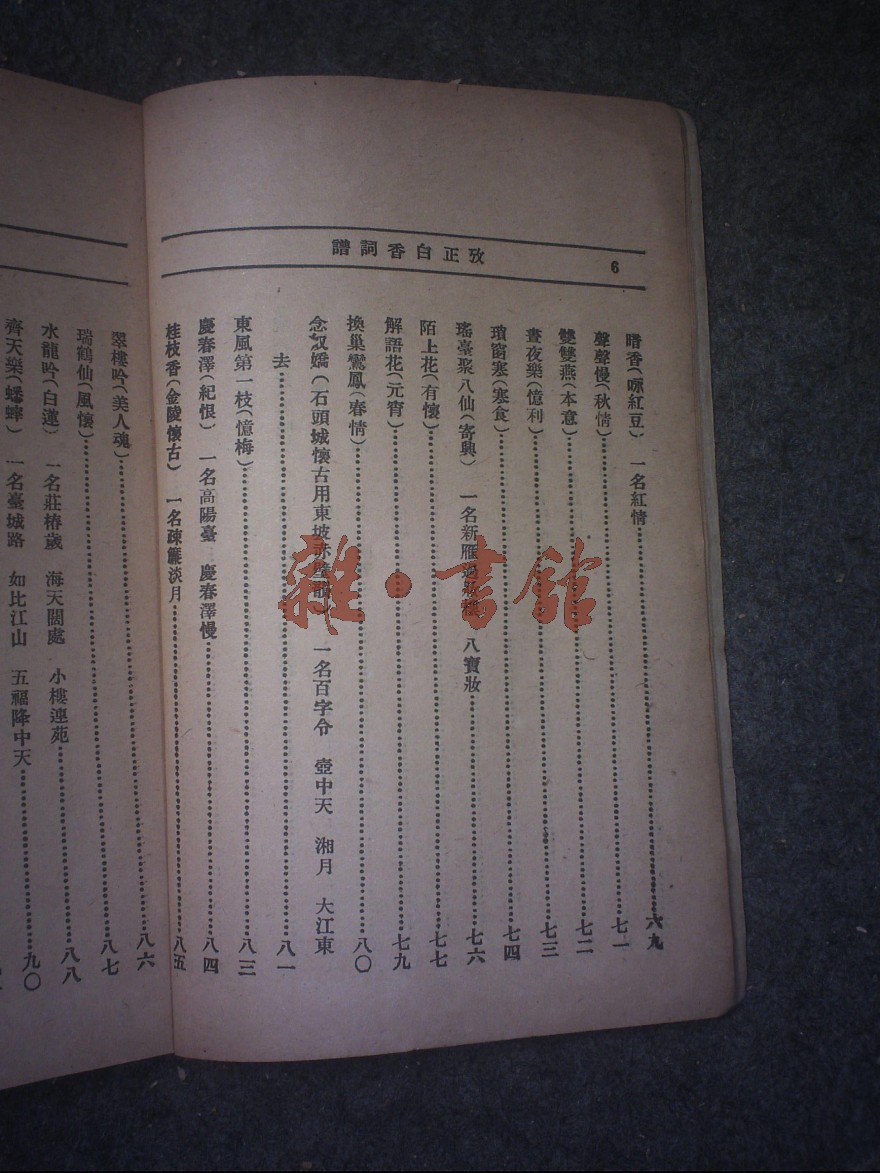 攷正白香詞譜
6
暗香(咏紅豆) 一名紅情 六九
聲聲慢(秋情) 七一
雙雙燕(本意) 七二
晝夜樂(憶利) 七三
瑣窗寒(寒食) 七四
瑤臺聚八仙(寄興) 一名新雁過妝樓 八寶妝 七六
陌上花(有懷) 七七
解語花(元宵) 七九
換巢鸞鳳(春情) 八〇
念奴嬌(石頭城懷古用東坡赤壁韻) 一名百字令 壺中天 湘月 大江東
去 八一
東風第一枝(憶梅) 八三
慶春澤(紀恨) 一名高陽臺 慶春澤慢 八四
桂枝香(金陵懷古) 一名疎簾淡月 八五
翠樓吟(美人魂) 八六
瑞鶴仙(風懷) 八七
水龍吟(白蓮) 一名莊椿歲 海天闊處 小樓連苑 八八
齊天樂(蟋蟀) 一名臺城路 如比江山 五福降中天 九〇
雜·書館